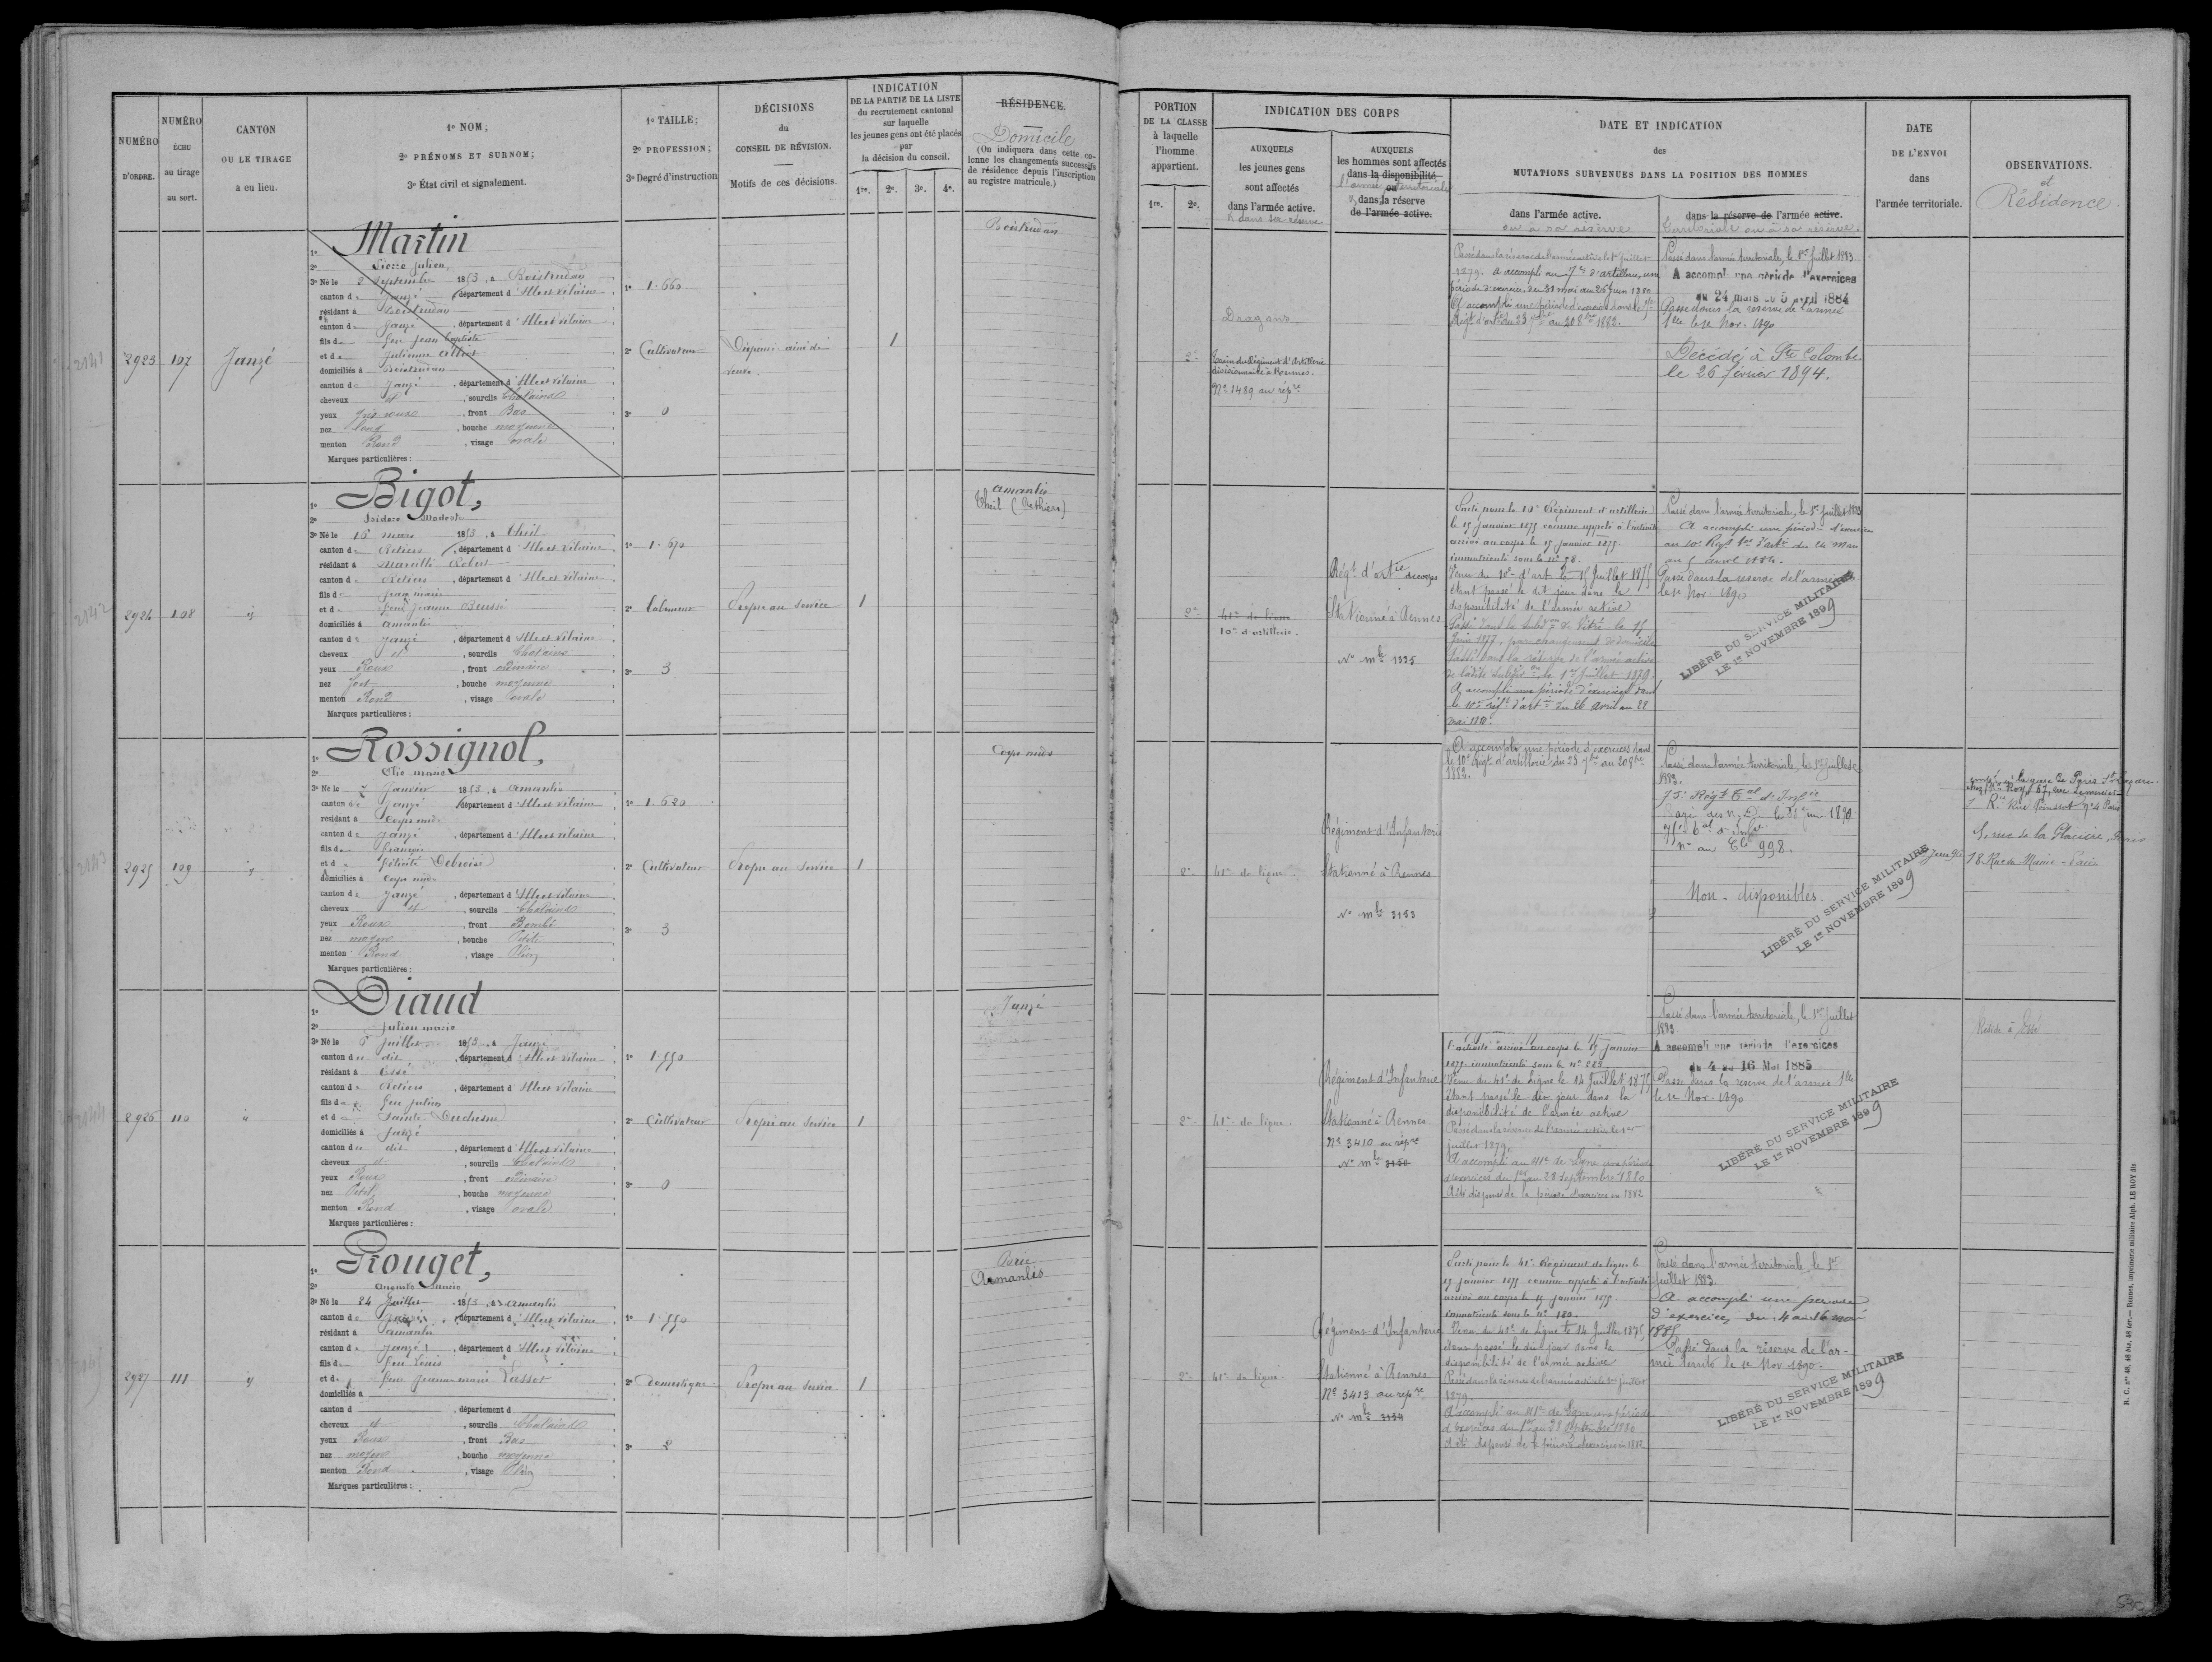 NUMÉRO
D'ORDRE.
NUMÉRO
ÉCHU
au tirage
au sort.
CANTON
OU LE TIRAGE
a eu lieu.
1º NOM;
2º PRÉNOMS ET SURNOM;
3º État civil et signalement.
1º TAILLE;
2º PROFESSION;
3º Degré d'instruction
DÉCISIONS
du
CONSEIL DE RÉVISION.
Motifs de ces décisions.
INDICATION
DE LA PARTIE DE LA LISTE
du recrutement cantonal
sur laquelle
les jeunes gens ont été placés
par
la décision du conseil.
1re. 2e. 3e. 4e.
RÉSIDENCE.
Domicile
(On indiquera dans cette co-
lonne les changements successifs
de résidence depuis l'inscription
au registre matricule.)
2141
2923 107 Janzé
1º Martin
2º Pierre Julien
3º Né le 2 Septembre 1853, à Boistrudan
canton de Janzé, département d'Ille et Vilaine
résidant à Boistrudan
canton de Janzé, département d'Ille et Vilaine
fils de feu Jean Baptiste
et de Julienne
domiciliés à Boistrudan
canton de Janzé, département d'Ille et Vilaine
cheveux et, sourcils Chatains
yeux Gris roux, front Bas
nez long, bouche moyenne
menton Rond, visage ovale
Marques particulières :
1º 1.660
2º Cultivateur
3º 0
Dispensé ainé de
veuve.
1
Boistrudan
2142
2924 108 id
1º Bigot,
2º Isidore Modeste
3º Né le 16 mars 1853, à Theil
canton de Retiers, département d'Ille et Vilaine
résidant à Marcillé Robert
canton de Retiers, département d'Ille et Vilaine
fils de Jean marie
et de feue Jeanne
domiciliés à Amanlis
canton de Janzé, département d'Ille et Vilaine
cheveux et, sourcils Chatains
yeux Roux, front ordinaire
nez fort, bouche moyenne
menton Rond, visage ovale
Marques particulières :
1º 1.670
2º Laboureur
3º 3
Propre au Service
1
Amanlis
Theil (Rethiers)
2143
2925 109 id
1º Rossignol,
2º Elie marie
3º Né le 7 Janvier 1853, à Amanlis
canton de Janzé, département d'Ille et Vilaine
résidant à Corps nuds
canton de Janzé, département d'Ille et Vilaine
fils de François
et de Félicité Debroise
domiciliés à Corps nuds
canton de Janzé, département d'Ille et Vilaine
cheveux et, sourcils Chatains
yeux Roux, front Bombé
nez moyen, bouche Petite
menton Rond, visage Plein
Marques particulières :
1º 1.620
2º Cultivateur
3º 3
Propre au Service
1
Corps nuds
2144
2926 110 id
1º Diaud
2º Julien marie
3º Né le 6 Juillet 1853, à Janzé
canton du dit, département d'Ille et Vilaine
résidant à Essé
canton de Retiers, département d'Ille et Vilaine
fils de feu Julien
et de Sainte Duchesne
domiciliés à Janzé
canton du dit, département d'Ille et Vilaine
cheveux et, sourcils Chatains
yeux Roux, front ordinaire
nez Petit, bouche moyenne
menton Rond, visage ovale
Marques particulières :
1º 1.550
2º Cultivateur
3º 0
Propre au Service
1
Janzé
2927 111 id
1º Rouget,
2º Marie
3º Né le 24 Juillet 1853, à Amanlis
canton de Janzé, département d'Ille et Vilaine
résidant à Amanlis
canton de Janzé, département d'Ille et Vilaine
fils de feu Louis
et de feue Jeanne marie Lassot
domiciliés à
canton d , département d
cheveux et, sourcils Chatains
yeux Roux, front Bas
nez moyen, bouche moyenne
menton Rond, visage Plein
Marques particulières :
1º 1.550
2º Domestique
3º 2
Propre au Service
1
Brie
Amanlis
PORTION
DE LA CLASSE
à laquelle
l'homme
appartient.
1re. 2e.
INDICATION DES CORPS
AUXQUELS
les jeunes gens
sont affectés
dans l'armée active.
& dans sa réserve
AUXQUELS
les hommes sont affectés
dans la disponibilité
l'armée ou territoriale
& dans la réserve
de l'armée active.
DATE ET INDICATION
des
MUTATIONS SURVENUES DANS LA POSITION DES HOMMES
dans l'armée active.
ou à sa réserve
dans la réserve de l'armée active.
territoriale ou à sa réserve.
DATE
DE L'ENVOI
dans
l'armée territoriale.
OBSERVATIONS.
et
Résidence.
2e
Dragons
Train du Régiment d'Artillerie
divisionnaire à Rennes.
Nº 1489 au répre
Passé dans la réserve de l'armée active le 1er Juillet
1879. A accompli au 7e d'artillerie, une
période d'exercices du 31 mai au 26 Juin 1880
A accompli une période d'exercices dans le 7e
Régt d'artie du 23 7bre au 20 8bre 1882.
Passé dans l'armée territoriale, le 1er Juillet 1883
A accompli une période d'exercices
du 24 mars au 5 avril 1884
Passé dans la réserve de l'armée
tlle le 1er Nov. 1890
Décédé à Ste Colombe
le 26 février 1894.
2e
41e de ligne
10e d'artillerie.
Régt d'Artie de corps
Stationné à Rennes
Nº mle 1335
Parti pour le 10e Régiment d'artillerie
le 15 janvier 1875 comme appelé à l'activité
arrivé au corps le 15 janvier 1875.
immatriculé sous le nº 98.
Venu du 10e d'art. le 15 Juillet 1875
étant passé le dit jour dans la
disponibilité de l'armée active
Passé dans la subdon de Vitré le 15
Juin 1877 par changement de domicile
Passé dans la réserve de l'armée active
de ladite subdivon le 1er Juillet 1879
A accompli une période d'exercices dans
le 10e régt d'artie du 26 avril au 22
mai 188.
Passé dans l'armée territoriale, le 1er Juillet 1883
A accompli une période d'exercices
au 10e Régt ter d'artie du 24 Mars
au 5 avril 1884.
Passé dans la réserve de l'armée tlle
le 1er Nov. 1890
LIBÉRÉ DU SERVICE MILITAIRE
LE 1er NOVEMBRE 1899
2e
41e de ligne
Régiment d'Infanterie
Stationné à Rennes
Nº mle 3153
A accompli une période d'exercices dans
le 10e Régt d'artillerie du 23 7bre au 20 8bre
1882.
Passé dans l'armée territoriale, le 1er Juillet
1882.
75e Régt Tal d'Infie
Rayé des N. D. le 21 Juin 1890
75e Tal d'Infie
nº au Cle 998.
Non-disponibles
LIBÉRÉ DU SERVICE MILITAIRE
LE 1er NOVEMBRE 1899
la gare de Paris St Lazare
5, rue de la Glacière, Paris
18 Rue du Maine Paris
2e
41e de ligne.
Régiment d'Infanterie
Stationné à Rennes
Nº 3410 au répre
Nº mle 3150
l'activité arrivé au corps le 15 janvier
1875 immatriculé sous le nº 223.
Venu du 41e de Ligne le 14 Juillet 1875
étant passé le dit jour dans la
disponibilité de l'armée active
Passé dans la réserve de l'armée active le 1er
juillet 1879.
A accompli au 41e de Ligne une période
d'exercices du 1er au 28 Septembre 1880
A été dispensé de la période d'exercices en 1882
Passé dans l'armée territoriale, le 1er Juillet
1883
A accompli une période d'exercices
du 4 au 16 Mai 1885
Passé dans la réserve de l'armée tlle
le 1er Nov. 1890
LIBÉRÉ DU SERVICE MILITAIRE
LE 1er NOVEMBRE 1899
Réside à Essé
2e
41e de ligne
Régiment d'Infanterie
Stationné à Rennes
Nº 3413 au répre
Nº mle 3154
Parti pour le 41e Régiment de ligne le
15 janvier 1875 comme appelé à l'activité
arrivé au corps le 15 janvier 1875.
immatriculé sous le nº 180.
Venu du 41e de Ligne le 14 Juillet 1875
étant passé le dit jour dans la
disponibilité de l'armée active
Passé dans la réserve de l'armée active le 1er juillet
1879.
A accompli au 41e de Ligne une période
d'exercices du 1er au 28 Septembre 1880
A été dispensé de la période d'exercices en 1882
Passé dans l'armée territoriale, le 1er
Juillet 1883
A accompli une période
d'exercices du 4 au 16 mai
1885
Passé dans la réserve de l'ar-
mée territle le 1er Nov. 1890.
LIBÉRÉ DU SERVICE MILITAIRE
LE 1er NOVEMBRE 1899
R. C. nos 48, 48 bis, 48 ter. — Rennes, imprimerie militaire Alph. LE ROY fils
530